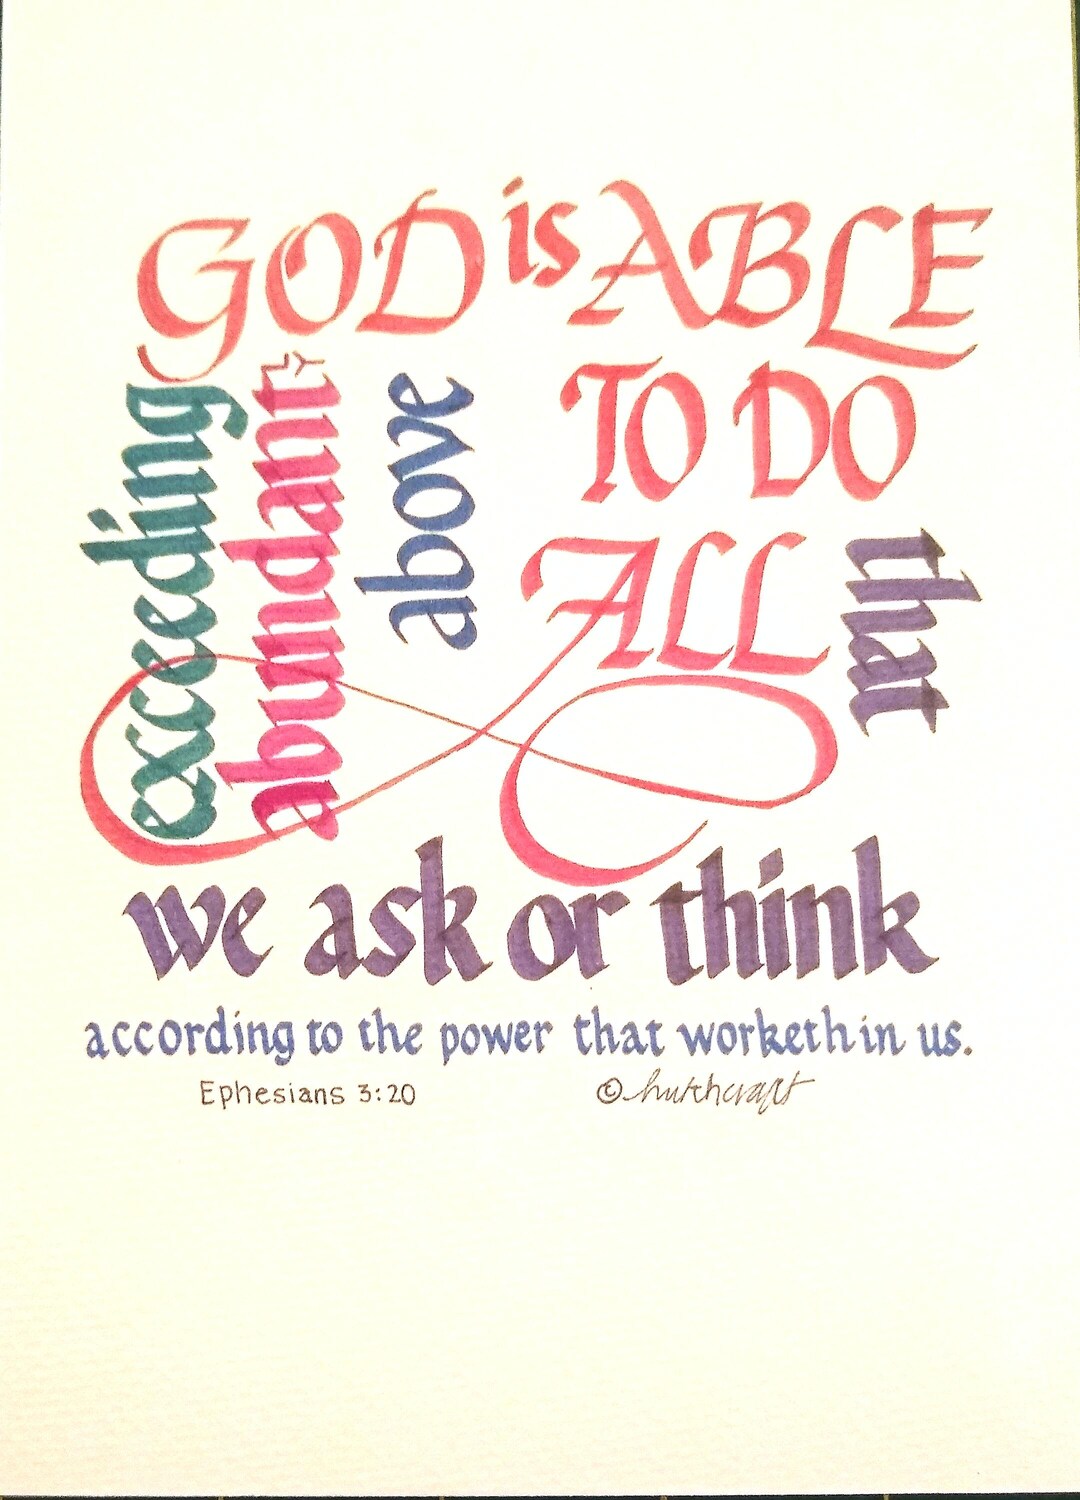 GOD is ABLE
TO DO
exceeding
abundantly
above
ALL
that
we ask or think
according to the power that worketh in us.
Ephesians 3:20
© hutchcraft